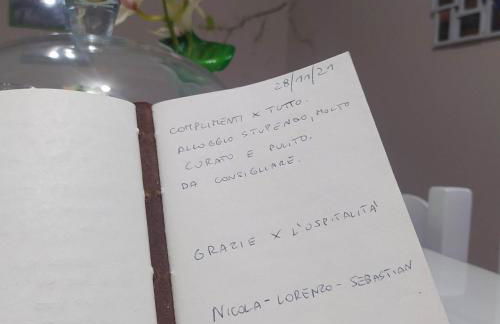 28/11/21
COMPLIMENTI X TUTTO.
ALLOGGIO STUPENDO, MOLTO
CURATO E PULITO.
DA CONSIGLIARE.
GRAZIE X L'OSPITALITÀ
NICOLA - LORENZO - SEBASTIAN